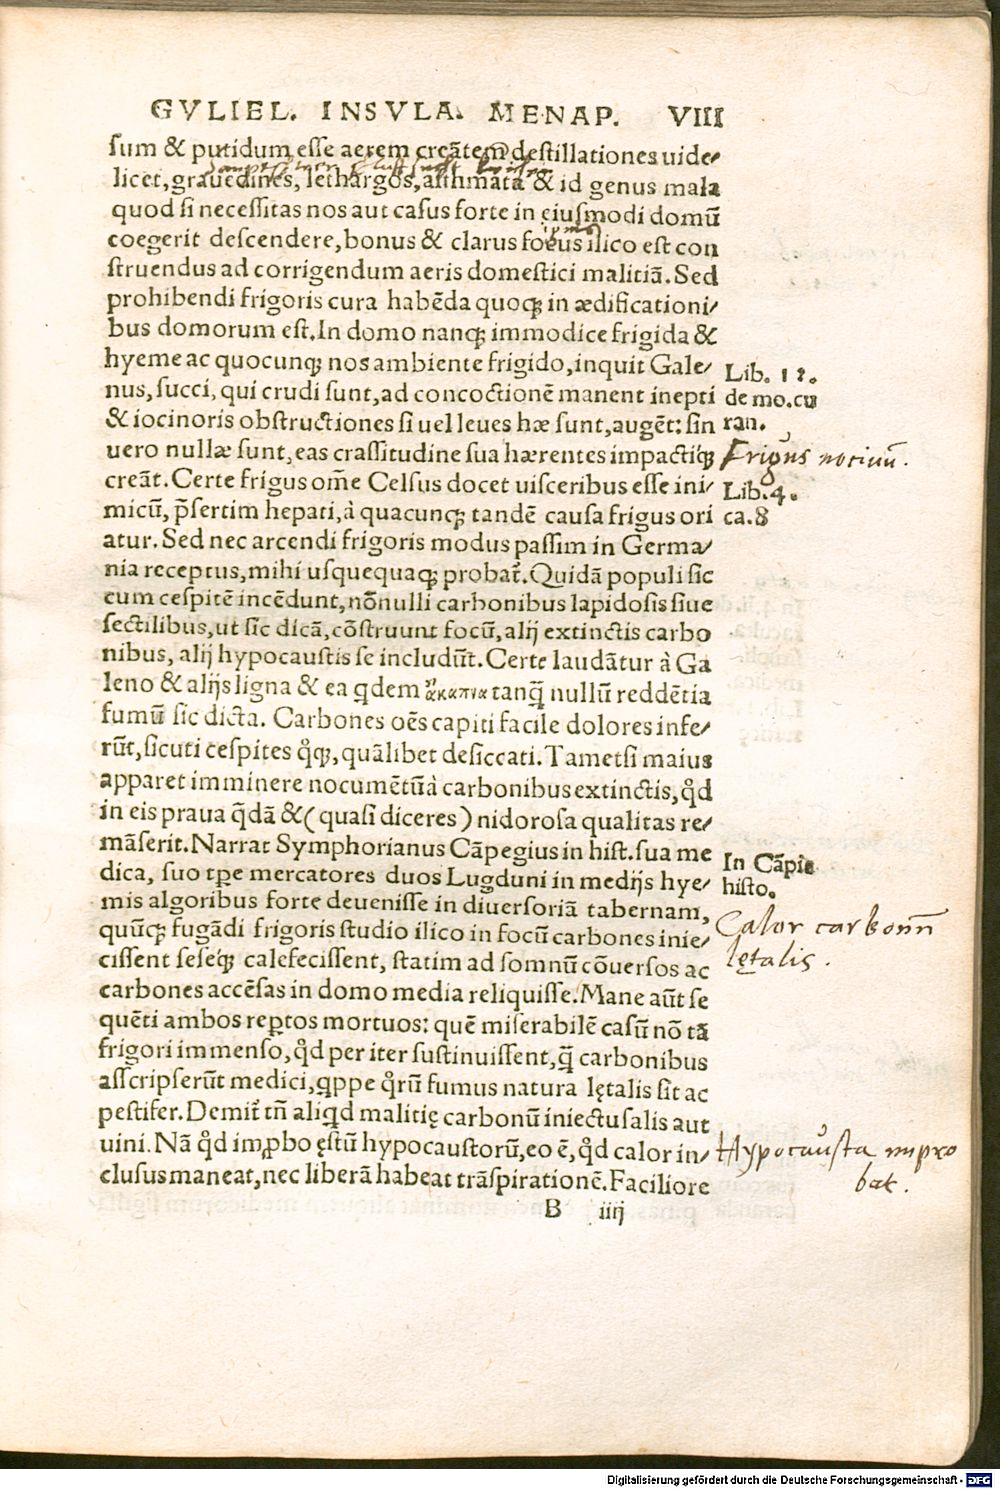 GVLIEL. INSVLA. MENAP. VIII
sum & putidum esse aerem creãtem destillationes uide⸗
licet, grauedines, lethargos, asthmata & id genus mala
quod si necessitas nos aut casus forte in eiusmodi domũ
coegerit descendere, bonus & clarus focus ilico est con
struendus ad corrigendum aeris domestici malitiã. Sed
prohibendi frigoris cura habẽda quoqꝫ in ædificationi⸗
bus domorum est. In domo nanqꝫ immodice frigida &
hyeme ac quocunqꝫ nos ambiente frigido, inquit Gale⸗
nus, succi, qui crudi sunt, ad concoctionẽ manent inepti
& iocinoris obstructiones si uel leues hæ sunt, augẽt: sin
uero nullæ sunt, eas crassitudine sua hærentes impactiqꝫ
creãt. Certe frigus om̃e Celsus docet uisceribus esse ini⸗
micũ, p̃sertim hepati, à quacunqꝫ tandẽ causa frigus ori
atur. Sed nec arcendi frigoris modus passim in Germa⸗
nia receptus, mihi usquequaqꝫ probat̃. Quidã populi sic
cum cespitẽ incẽdunt, nõnulli carbonibus lapidosis siue
sectilibus, ut sic dicã, cõstruunt focũ, alij extinctis carbo
nibus, alij hypocaustis se includũt. Certe laudãtur à Ga
leno & alijs ligna & ea qdem ἄκαπνα tanq̃ nullũ reddẽtia
fumũ sic dicta. Carbones oẽs capiti facile dolores infe⸗
rũt, sicuti cespites q̊qꝫ, quãlibet desiccati. Tametsi maius
apparet imminere nocumẽtũ à carbonibus extinctis, q̊d
in eis praua q̃dã & (quasi diceres) nidorosa qualitas re⸗
mãserit. Narrat Symphorianus Cãpegius in hist. sua me
dica, suo tꝑe mercatores duos Lugduni in medijs hye⸗
mis algoribus forte deuenisse in diuersoriã tabernam,
quũqꝫ fugãdi frigoris studio ilico in focũ carbones inie⸗
cissent seseqꝫ calefecissent, statim ad somnũ cõuersos ac
carbones accẽsas in domo media reliquisse. Mane aũt se
quẽti ambos reptos mortuos: quẽ miserabilẽ casũ nõ tã
frigori immenso, q̊d per iter sustinuissent, q̃ carbonibus
asscripserũt medici, qppe q̊rũ fumus natura lętalis sit ac
pestifer. Demit̃ tñ aliqd malitię carbonũ iniectu salis aut
uini. Nã q̊d improbo ęstũ hypocaustorũ, eo ẽ, q̊d calor in⸗
clusus maneat, nec liberã habeat trãspirationẽ. Faciliore
B iiij
Lib. 12.
de mo. cu
ran.
Frigus nociuũ.
Lib. 4.
ca. 8
In Cãpie
histo.
Calor carbonũ
lętalis.
Hypocausta impro
bat.
Digitalisierung gefördert durch die Deutsche Forschungsgemeinschaft - DFG